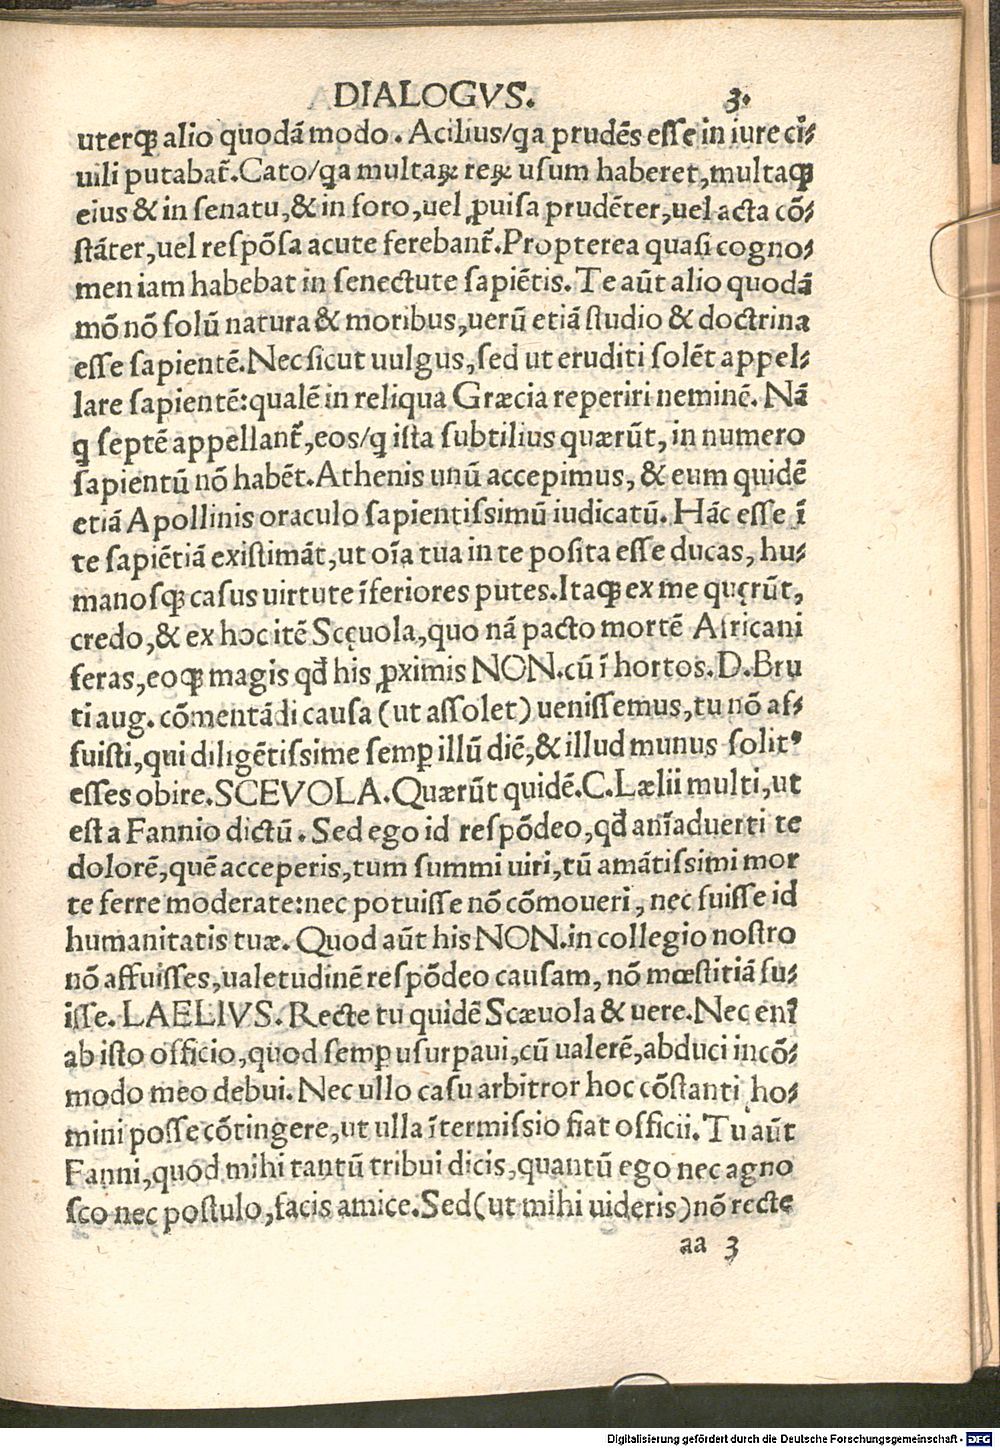 DIALOGVS. 3.
uterqꝫ alio quodã modo. Acilius/qa prudẽs esse in iure ci⸗
uili putabat̃. Cato/qa multaꝝ reꝝ usum haberet, multaqꝫ
eius & in senatu, & in foro, uel ꝓuisa prudẽter, uel acta cõ⸗
stãter, uel respõsa acute ferebant̃. Propterea quasi cogno⸗
men iam habebat in senectute sapiẽtis. Te aũt alio quodã
mõ nõ solũ natura & moribus, uerũ etiã studio & doctrina
esse sapientẽ. Nec sicut uulgus, sed ut eruditi solẽt appel⸗
lare sapientẽ: qualẽ in reliqua Græcia reperiri neminẽ. Nã
q septẽ appellant̃, eos/q ista subtilius quærũt, in numero
sapientũ nõ habẽt. Athenis unũ accepimus, & eum quidẽ
etiã Apollinis oraculo sapientissimũ iudicatũ. Hãc esse ĩ
te sapiẽtiã existimãt, ut oĩa tua in te posita esse ducas, hu⸗
manosqꝫ casus uirtute ĩferiores putes. Itaqꝫ ex me quęrũt,
credo, & ex hoc itẽ Scęuola, quo nã pacto mortẽ Africani
feras, eoqꝫ magis qđ his ꝓximis NON. cũ ĩ hortos. D. Bru
ti aug. cõmentãdi causa (ut assolet) uenissemus, tu nõ af⸗
fuisti, qui diligẽtissime semꝑ illũ diẽ, & illud munus solitꝰ
esses obire. SCEVOLA. Quærũt quidẽ. C. Lælii multi, ut
est a Fannio dictũ. Sed ego id respõdeo, qđ anĩaduerti te
dolorẽ, quẽ acceperis, tum summi uiri, tũ amãtissimi mor
te ferre moderate: nec potuisse nõ cõmoueri, nec fuisse id
humanitatis tuæ. Quod aũt his NON. in collegio nostro
nõ affuisses, ualetudinẽ respõdeo causam, nõ mœstitiã fu⸗
isse. LAELIVS. Recte tu quidẽ Scæuola & uere. Nec enĩ
ab isto officio, quod semꝑ usurpaui, cũ ualerẽ, abduci incõ⸗
modo meo debui. Nec ullo casu arbitror hoc cõstanti ho⸗
mini posse cõtingere, ut ulla ĩtermissio fiat officii. Tu aũt
Fanni, quod mihi tantũ tribui dicis, quantũ ego nec agno
sco nec postulo, facis amice. Sed (ut mihi uideris) nõ recte
aa 3
Digitalisierung gefördert durch die Deutsche Forschungsgemeinschaft - DFG